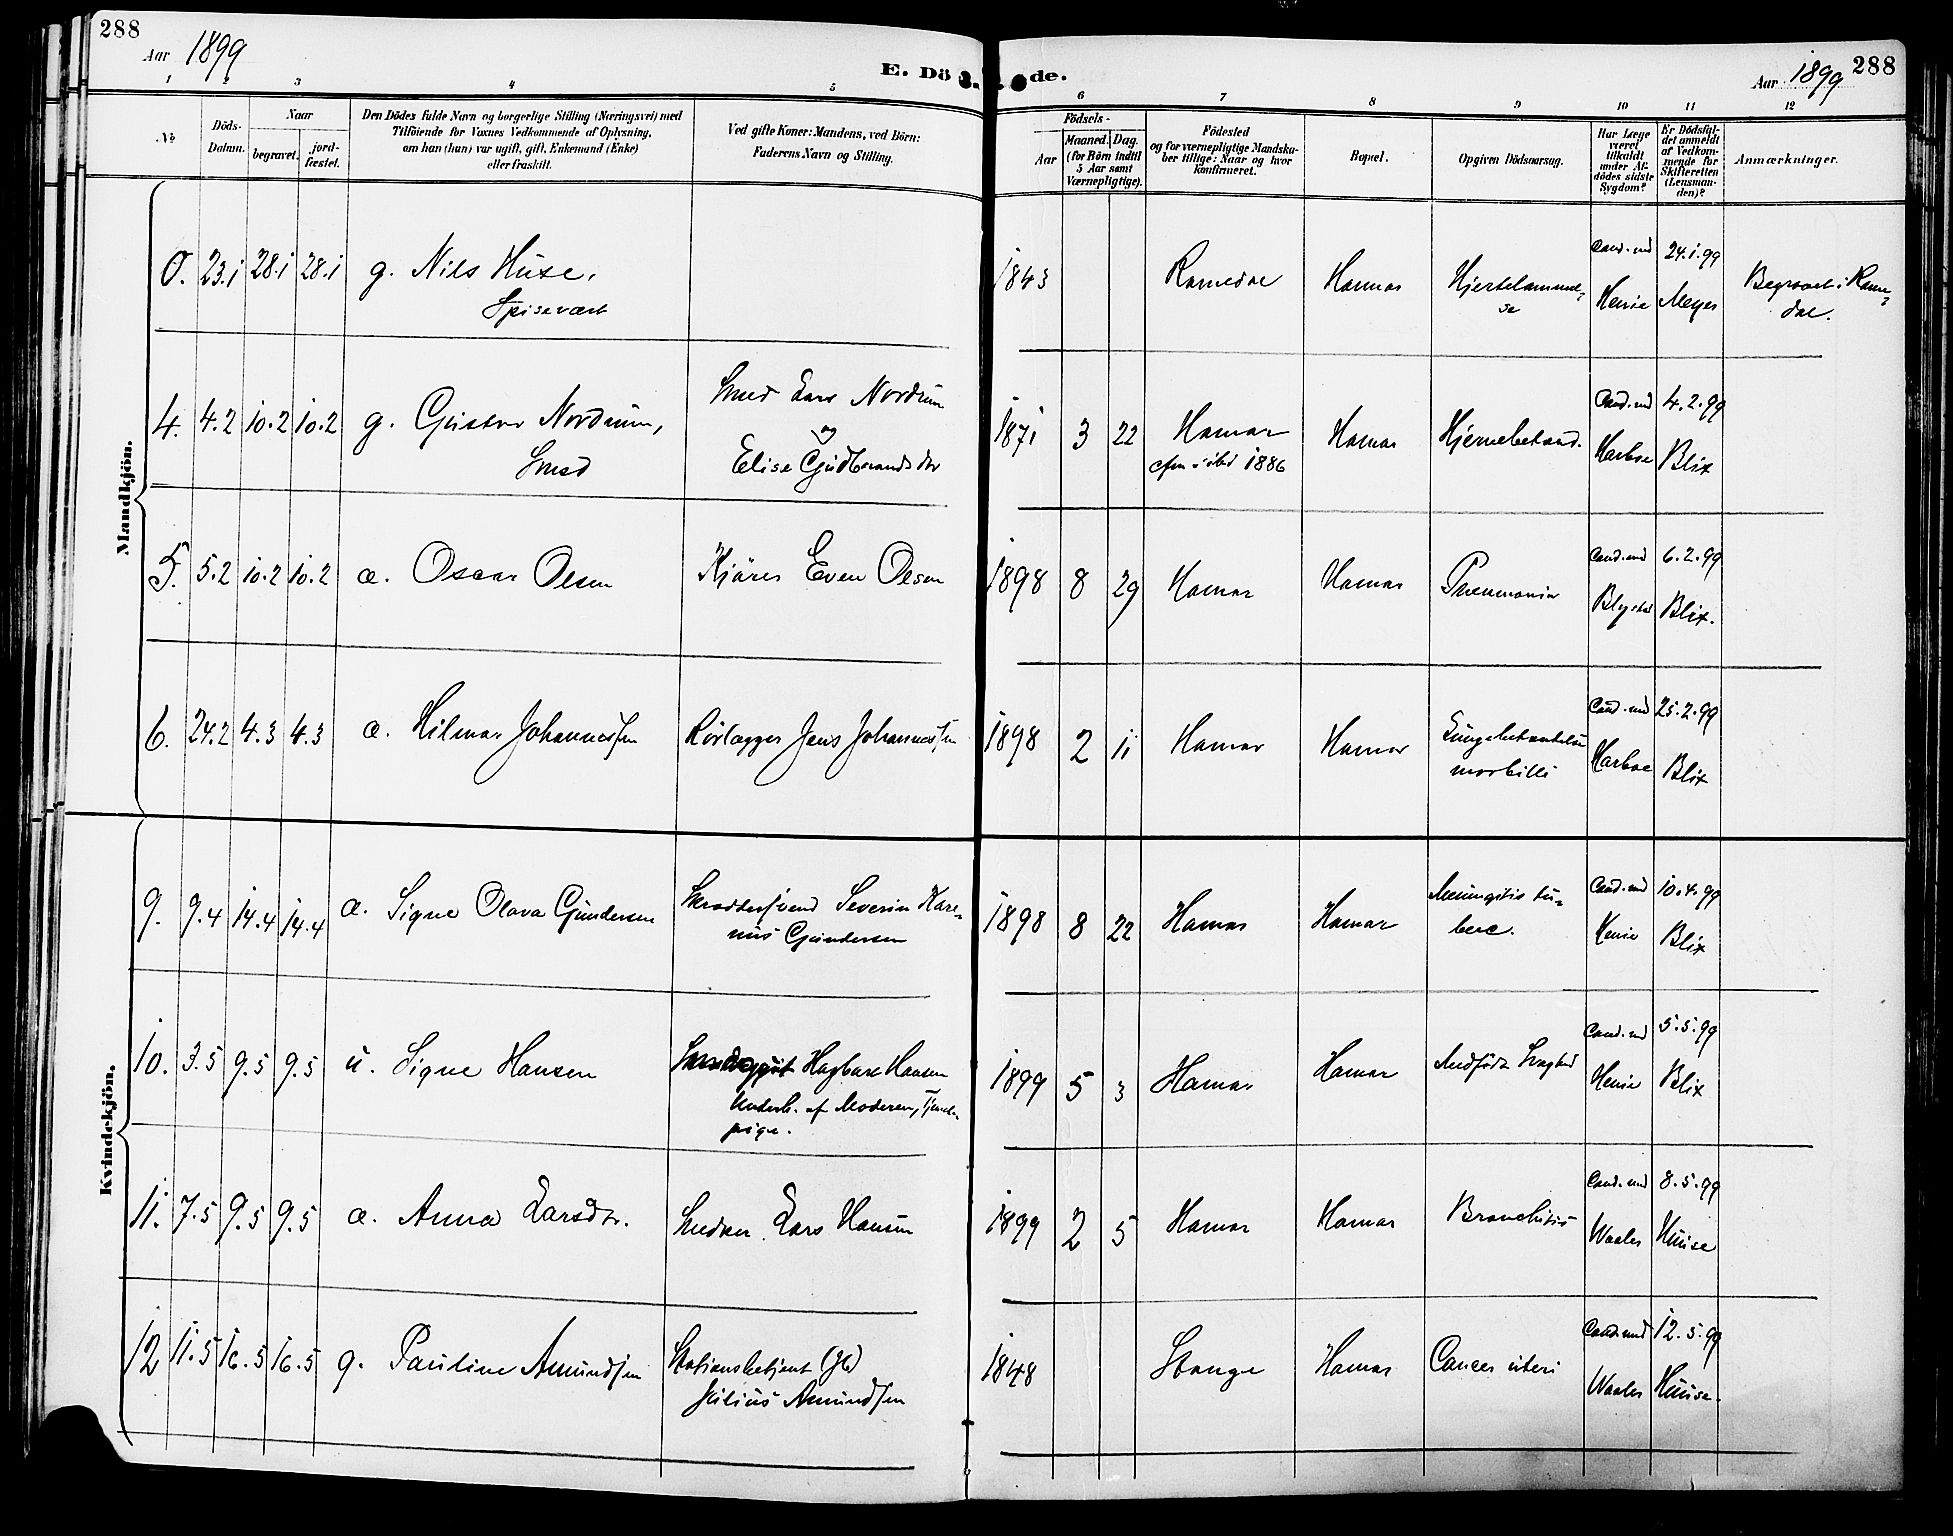 288
Aar 1899
E. Dö de.
Aar 1899
288
1 2 3 4 5 6 7 8 9 10 11 12
No
Döds-
Datum.
Naar
begravet.
jord-
fæstet.
Den Dödes fulde Navn og borgerlige Stilling (Næringsvei) med
Tilföiende for Voxnes Vedkommende af Oplysning,
om han (hun) var ugift, gift, Enkemand (Enke)
eller fraskilt.
Ved gifte Koner: Mandens, ved Börn:
Faderens Navn og Stilling.
Födsels-
Aar
Maaned. Dag.
(for Börn indtil
5 Aar samt
Værnepligtige).
Födested
og for værnepligtige Mandska-
ber tillige: Naar og hvor
konfirmeret.
Bopæl.
Opgiven Dödsaarsag.
Har Læge
været
tilkaldt
under Af-
dödes sidste
Sygdom?
Er Dödsfal-
det anmeldt
af Vedkom-
mende for
Skifteretten
(Lensman-
den)?
Anmærkninger.
Mandkjön.
0. 23.1 28.1 28.1 g. Nils Huse,
Spisevært
1843 Romedal Hamar Hjertelammel-
se
Cand. med
Henie
24.1.99
Meyer
Begravet i Rome-
dal.
4. 4.2 10.2 10.2 g. Gustav Nordrum,
Smed
Smed Lars Nordrum
og
Elise Gudbrandsdtr
1871 3 22 Hamar
cfm i ibd 1886
Hamar Hjernebetænd.
Cand. med
Harboe
4.2.99
Blix
5. 5.2 10.2 10.2 æ. Oscar Olsen
Kjörer Even Olsen
1898 8 29 Hamar Hamar Pneumonia
Cand. med
Blystad
6.2.99
Blix.
6. 24.2 4.3 4.3 æ. Hilmar Johannessen
Rörlægger Jens Johannessen
1898 2 11 Hamar Hamar Lungebetændelse
morbilli
Cand. med
Harboe
25.2.99
Blix
Kvindekjön.
9. 9.4 14.4 14.4 æ. Signe Olava Gundersen
Skrædersvend Severin Kare-
nius Gundersen
1898 8 22 Hamar Hamar Meningitis tu-
berc.
Cand. med
Henie
10.4.99
Blix
10. 3.5 9.5 9.5 u. Signe Hansen
Hagbart Hansen
Underh. af Moderen, Tjeneste-
pige.
1899 5 3 Hamar Hamar Medfödt Svaghed
Cand. med
Henie
5.5.99
Blix
11. 7.5 9.5 9.5 æ. Anna Larsdtr.
Snedker Lars Hansen
1899 2 5 Hamar Hamar Bronchitis
Cand. med
Waaler
8.5.99
Huuse
12 11.5 16.5 16.5 g. Pauline Amundsen
Stationsbetjent (Jb)
Julius Amundsen
1848 Stange Hamar Cancer uteri
Cand. med
Waaler
12.5.99
Huuse.